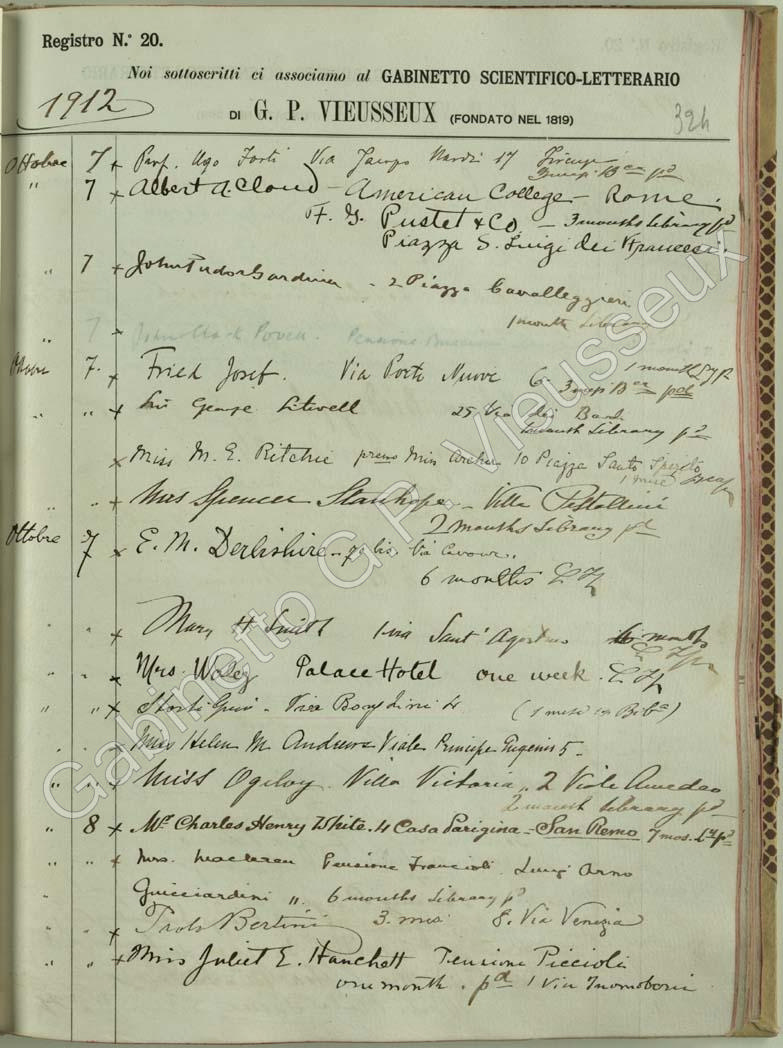 Registro N.º 20.
Noi sottoscritti ci associamo al GABINETTO SCIENTIFICO-LETTERARIO
1912
DI G. P. VIEUSSEUX (FONDATO NEL 1819)
324
Ottobre 7 + Prof. Ugo Forti Via Jacopo Nardi 17 Firenze
3 mesi
" 7 + Albert A. Cloud - American College - Rome.
F. G. Pustet & Co. - 3 months Library pd
Piazza S. Luigi dei Francesi.
" 7 + John Tudor Gardiner - 2 Piazza Cavalleggieri
1 month Library
" 7 + John Clark Powell. Pensione
7. + Fried Josef. Via Porte Nuove 6. 3 mesi pd
1 month
" " + Sir George Sitwell 25 Via dei Bardi
1 month Library pd
+ Miss M. E. Ritchie presso Miss Archer 10 Piazza Santo Spirito
1 mese
" + Mrs Spencer Stanhope - Villa
2 months Library pd
Ottobre 7 + E. M. Derbishire - bis. Via Cavour.
6 months
" + Mary H Smith 1 via Sant' Agostino 6 months
" Mrs. Woley Palace Hotel one week.
" " + 4 (1 mese
" " + Miss Helen M Andrews Viale Principe Eugenio 5.
" " + Miss Ogilvy. Villa Victoria, 2 Viale Amedeo
2 month Library pd
" 8 + Mr Charles Henry White. 4 Casa Parigina - San Remo 7 mos.
" " + Mrs. Maclaren Pensione Francioli. Lung' Arno
Guicciardini " 6 months Library pd
+ Bertini 3. mesi 8. Via Venezia
" " + Miss Juliet E. Hanchett Pensione Piccioli
one month. pd 1 Via Tornabuoni
Gabinetto G.P. Vieusseux